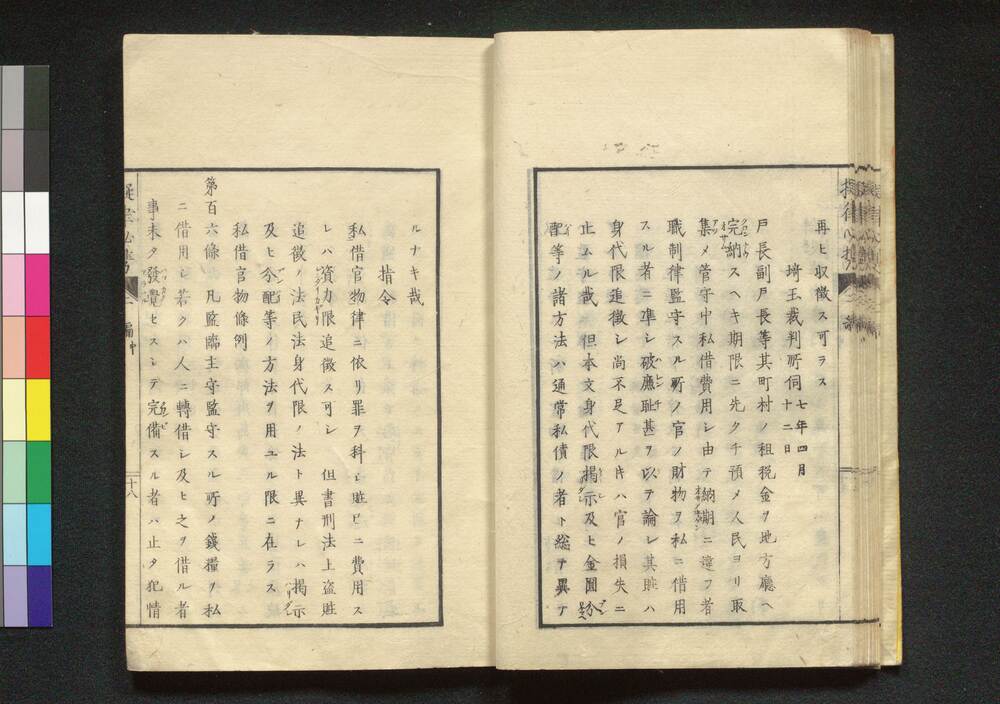 再ヒ収徴ス可ラス
埼玉裁判所伺 七年四月十二日
戸長副戸長等其町村ノ租税金ヲ地方廳ヘ
完納スヘキ期限ニ先タチ預メ人民ヨリ取
集メ管守中私借費用シ由テ納期ニ違フ者
職制律監守スル所ノ官ノ財物ヲ私ニ借用
スル者ニ準シ破廉耻甚ヲ以テ論シ其賍ハ
身代限追徴シ尚不足アル片ハ官ノ損失ニ
止ムル哉 但本文身代限掲示及ヒ金圓分
配等ノ諸方法ハ通常私債ノ者ト総テ異テ
ルナキ哉
指令
私借官物律ニ依リ罪ヲ科シ賍已ニ費用ス
レハ資力限追徴ス可シ 但書刑法上盗賍
追徴ノ法民法身代限ノ法ト異ナレハ掲示
及ヒ分配等ノ方法ヲ用ユル限ニ在ラス
私借官物條例
第百六條 凡監臨主守監守スル所ノ錢糧ヲ私
ニ借用シ若クハ人ニ轉借シ及ヒ之ヲ借ル者
事未タ發覺セスシテ完備スル者ハ止タ犯情
十八